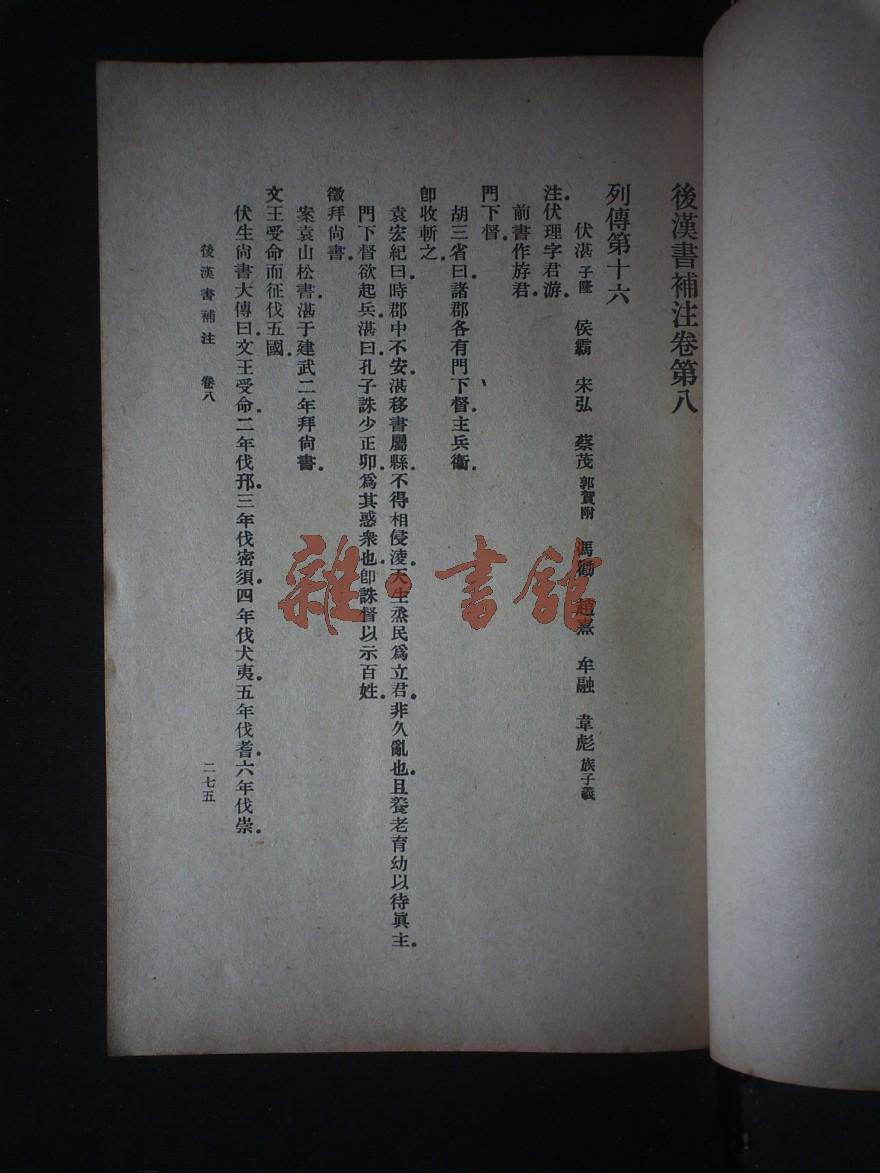 後漢書補注卷第八
列傳第十六
伏湛子隆 侯霸 宋弘 蔡茂郭賀附 馮勤 趙熹 牟融 韋彪族子義
注伏理字君游
前書作斿君
門下督
胡三省曰諸郡各有門下督主兵衞
卽收斬之
袁宏紀曰時郡中不安湛移書屬縣不得相侵淩天生烝民爲立君非久亂也且養老育幼以待眞主
門下督欲起兵湛曰孔子誅少正卯爲其惑衆也卽誅督以示百姓
徵拜尙書
案袁山松書湛于建武二年拜尙書
文王受命而征伐五國
伏生尙書大傳曰文王受命二年伐邘三年伐密須四年伐犬夷五年伐耆六年伐崇
後漢書補注 卷八 二七五
雜·書館